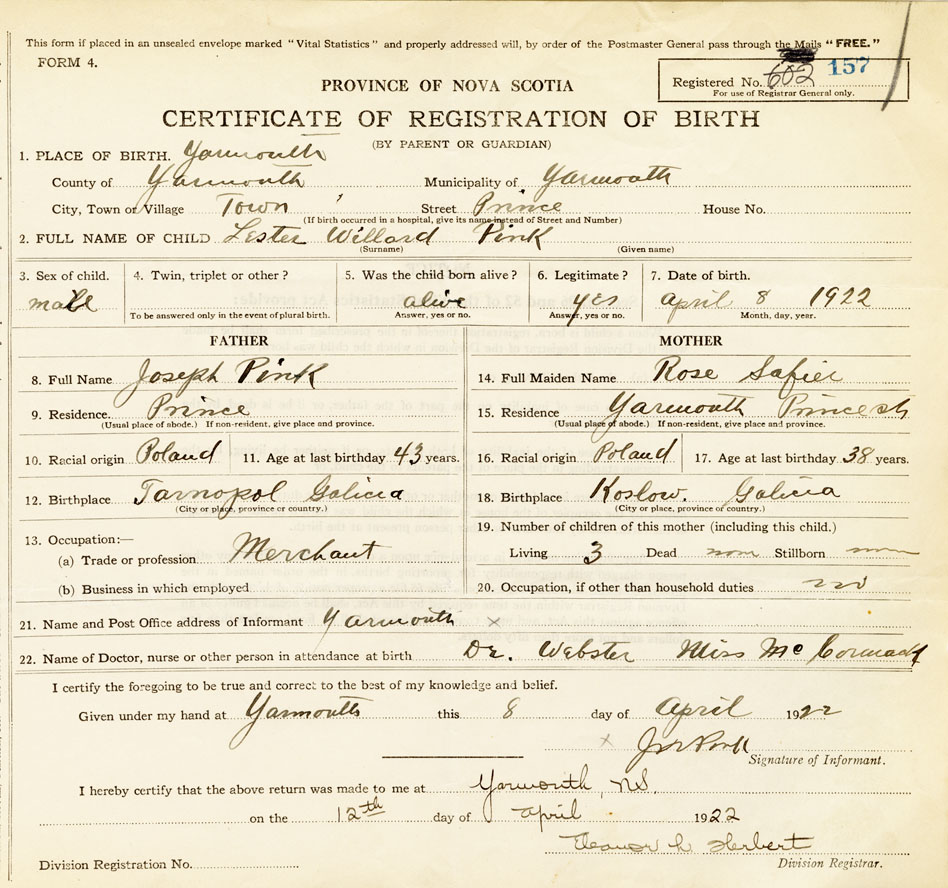 This form if placed in an unsealed envelope marked "Vital Statistics" and properly addressed will, by order of the Postmaster General pass through the Mails "FREE."
FORM 4.
Registered No. 602 157
For use of Registrar General only.
PROVINCE OF NOVA SCOTIA
CERTIFICATE OF REGISTRATION OF BIRTH
(BY PARENT OR GUARDIAN)
1. PLACE OF BIRTH. Yarmouth
County of Yarmouth Municipality of Yarmouth
City, Town or Village Town Street Prince House No.
(If birth occurred in a hospital, give its name instead of Street and Number)
2. FULL NAME OF CHILD Lester Willard Pink
(Surname) (Given name)
3. Sex of child. 4. Twin, triplet or other? 5. Was the child born alive? 6. Legitimate? 7. Date of birth.
male alive yes april 8 1922
To be answered only in the event of plural birth. Answer, yes or no. Answer, yes or no. Month, day, year.
FATHER MOTHER
8. Full Name Joseph Pink 14. Full Maiden Name Rose Safier
9. Residence. Prince 15. Residence Yarmouth Prince st
(Usual place of abode.) If non-resident, give place and province. (Usual place of abode.) If non-resident, give place and province.
10. Racial origin Poland 11. Age at last birthday 43 years. 16. Racial origin Poland 17. Age at last birthday 38 years.
12. Birthplace Tarnopol Galicia 18. Birthplace Koslow. Galicia
(City or place, province or country.) (City or place, province or country.)
13. Occupation:— 19. Number of children of this mother (including this child.)
(a) Trade or profession Merchant Living 3 Dead Stillborn
(b) Business in which employed 20. Occupation, if other than household duties no
21. Name and Post Office address of Informant Yarmouth x
22. Name of Doctor, nurse or other person in attendance at birth Dr. Webster Miss McCormack
I certify the foregoing to be true and correct to the best of my knowledge and belief.
Given under my hand at Yarmouth this 8 day of April 1922
x Pink
Signature of Informant.
I hereby certify that the above return was made to me at Yarmouth, N.S.
on the 12th day of April 1922
Eleanor L. Herbert
Division Registration No. Division Registrar.